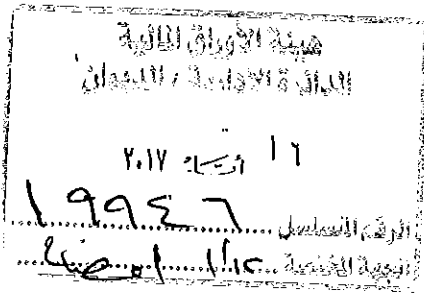 هيئة الأوراق المالية
الدائرة الإدارية / الديوان
١٦ ٢٠١٧
الرقم المتسلسل ١٩٩٤٦
الجهة المختصة